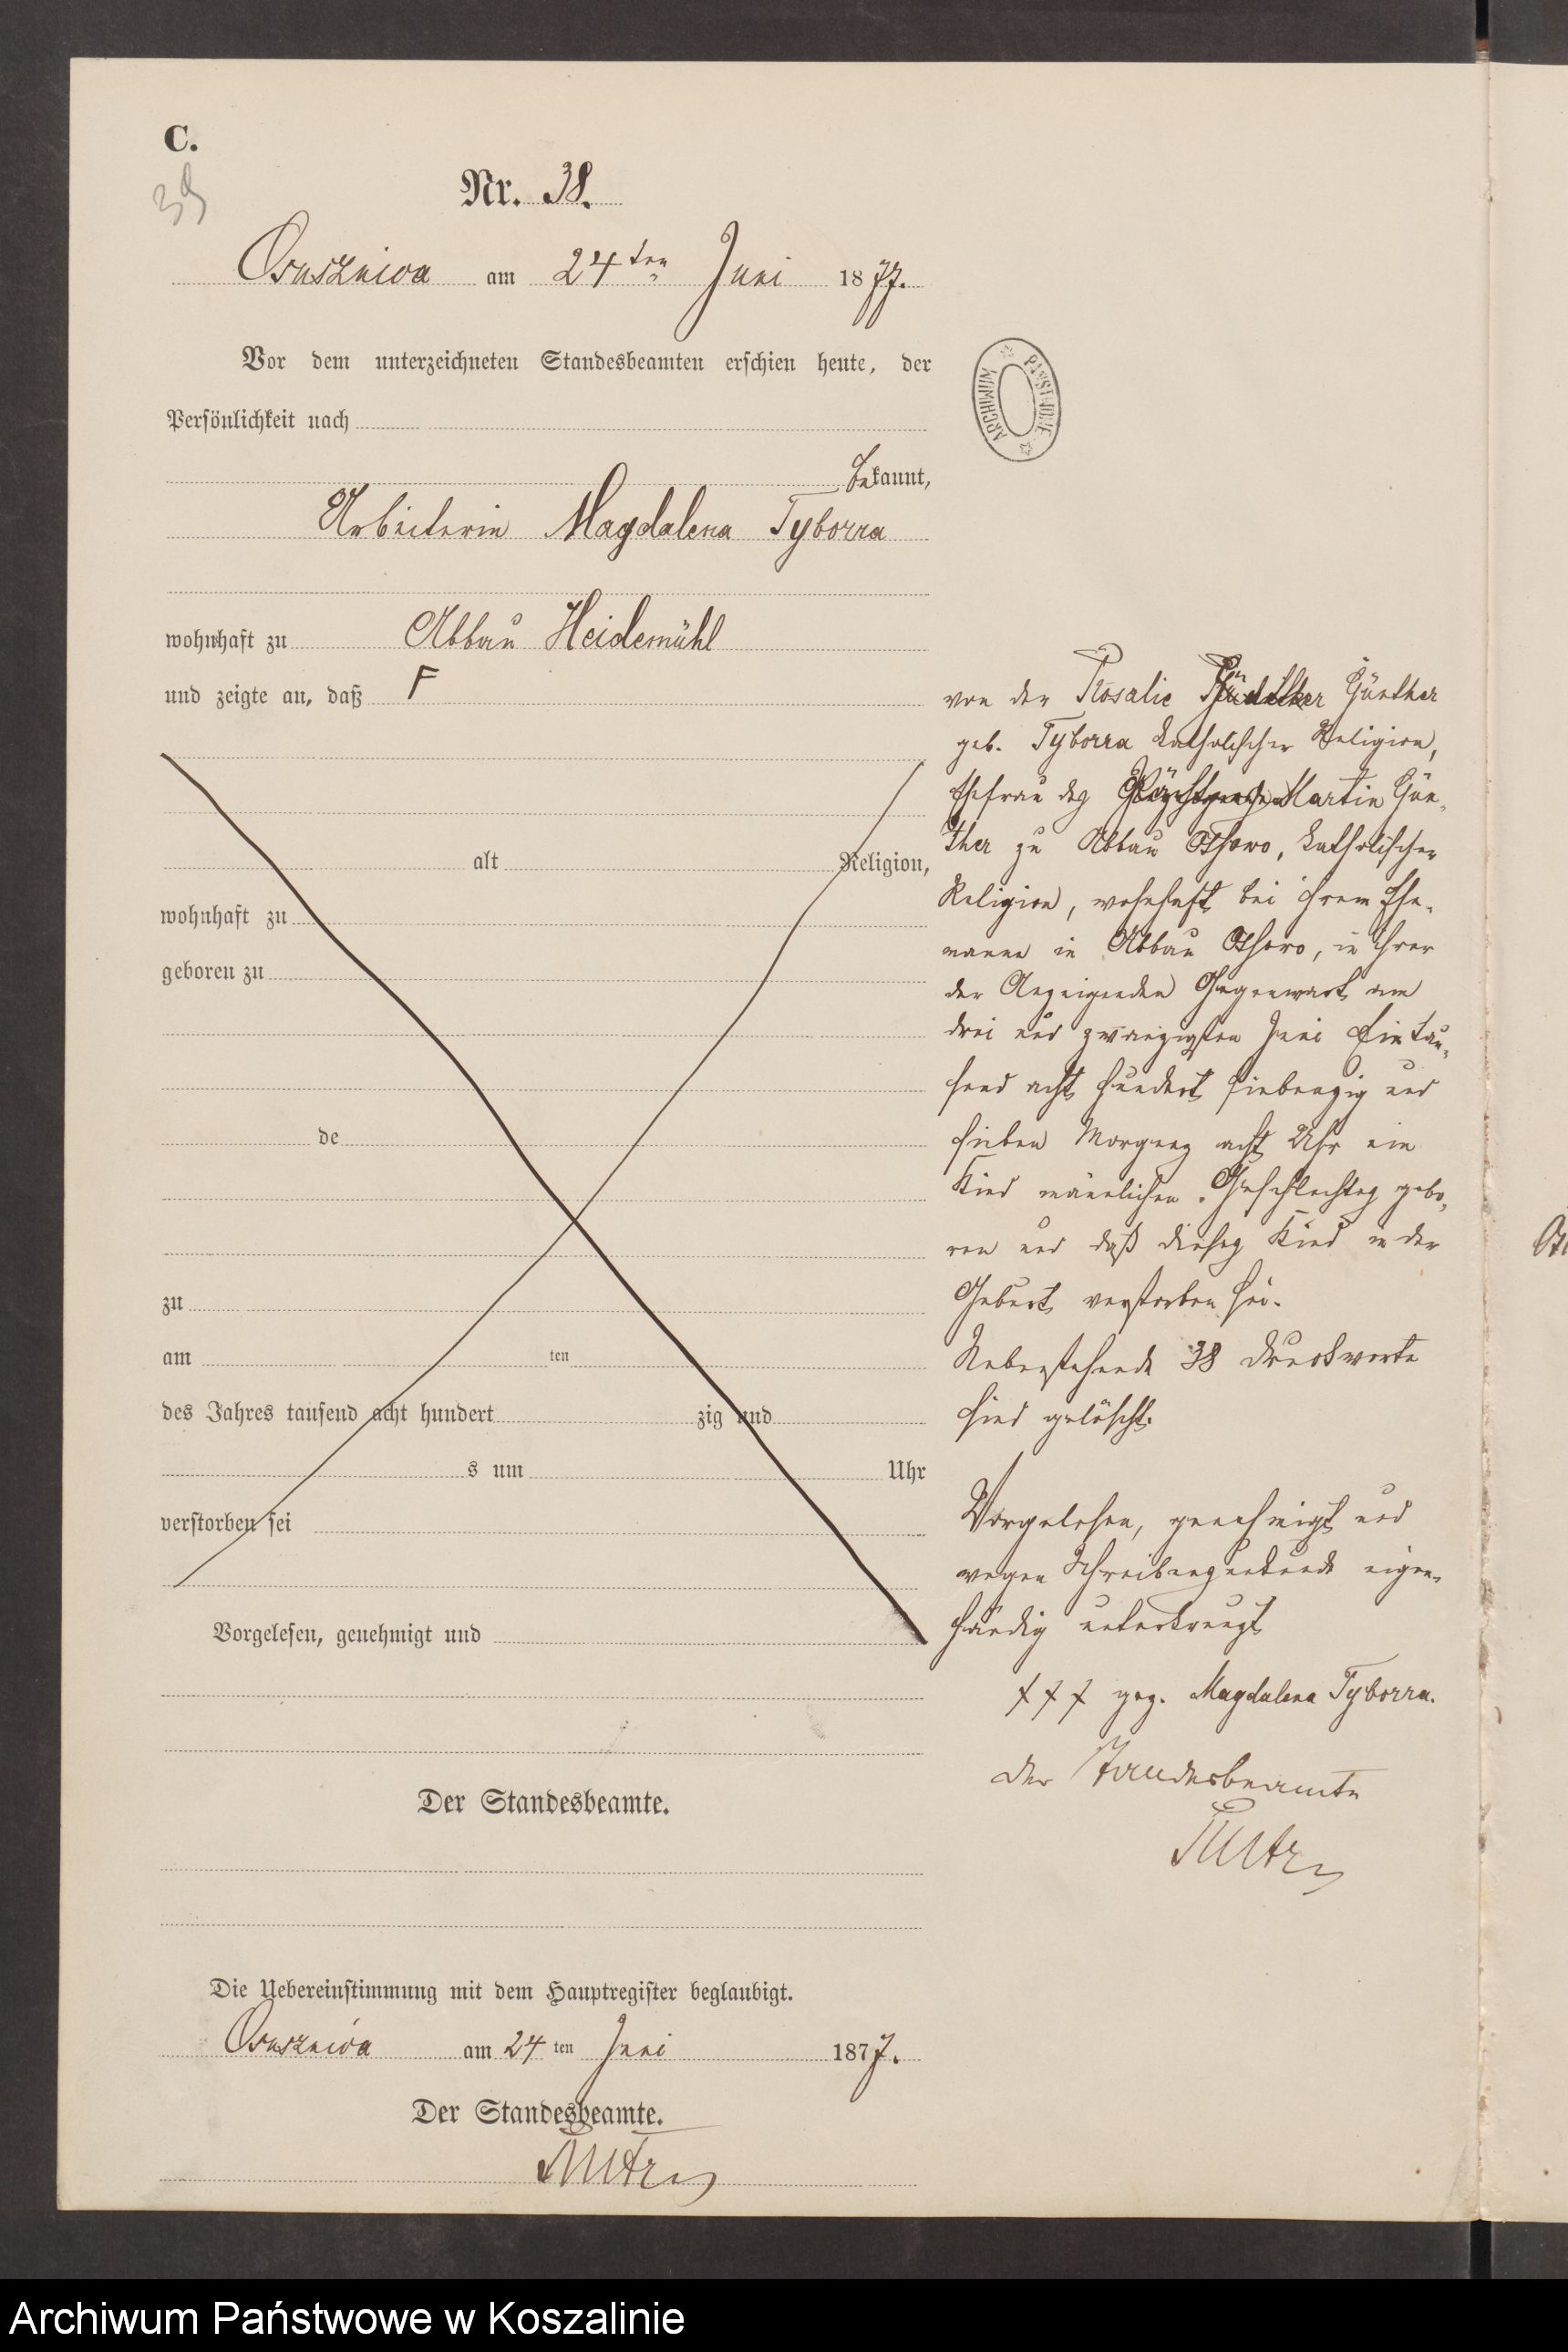 C.
39
Nr. 38.
Osusznica am 24ten Juni 1877.
Vor dem unterzeichneten Standesbeamten erschien heute, der
Persönlichkeit nach
bekannt,
Arbeiterin Magdalena Tyborra
wohnhaft zu Abbau Heidemühl
und zeigte an, daß
von der Rosalie Günther
geb. Tyborra katholischer Religion,
Ehefrau des Martin Gün-
ther zu Abbau, katholischer
Religion, wohnhaft bei ihrem Ehe-
manne in Abbau, in ihrer
der Anzeigenden Gegenwart am
drei und zwanzigsten Juni Ein tau-
send acht hundert siebenzig und
sieben Morgens acht Uhr ein
Kind männlichen Geschlechtes gebo-
ren und daß dieses Kind in der
Geburt verstorben sei.
Nebenstehende 38 Druckworte
sind gelöscht.
alt Religion,
wohnhaft zu
geboren zu
de
zu
am ten
des Jahres tausend acht hundert zig und
s um Uhr
verstorben sei
Vorgelesen, genehmigt und
Vorgelesen, genehmigt und
wegen Schreibensunkunde eigen-
händig unterkreuzt
+++ gez. Magdalena Tyborra.
Der Standesbeamte
Der Standesbeamte.
Die Uebereinstimmung mit dem Hauptregister beglaubigt.
Osusznica am 24ten Juni 1877.
Der Standesbeamte.
Archiwum Państwowe w Koszalinie